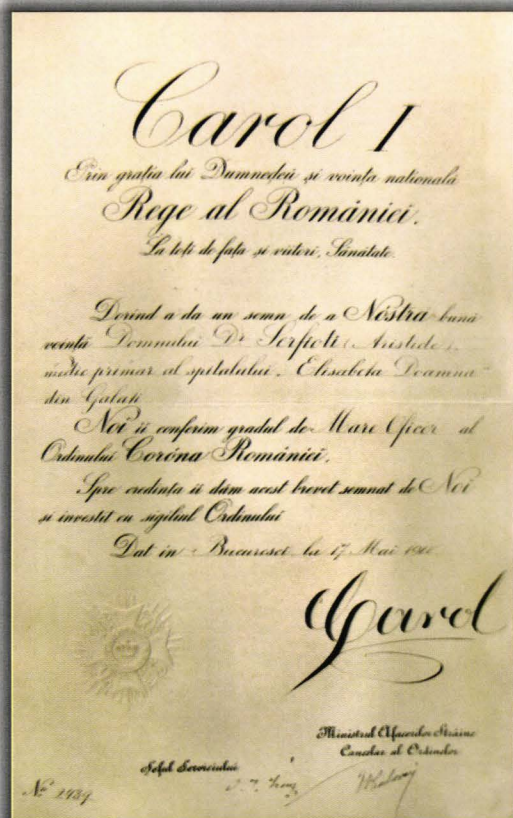 Carol I
Prin grația lui Dumneḑeŭ și voința națională
Rege al României.
La toți de față și viitori, Sănătate.
Dorind a da un semn de a Nóstră bună
voință Domnului Dr Serfioti (Aristide),
medic primar al spitalului „Elisabeta Doamna”
din Galați
Noi îi conferim gradul de Mare Oficer al
Ordinului Coróna României.
Spre credință îi dăm acest brevet semnat de Noi
și investit cu sigiliul Ordinului
Dat în Bucuresci la 17 Mai
Carol
Ministrul Afacerilor Străine
Cancelar al Ordinelor
Șeful Serviciului
No